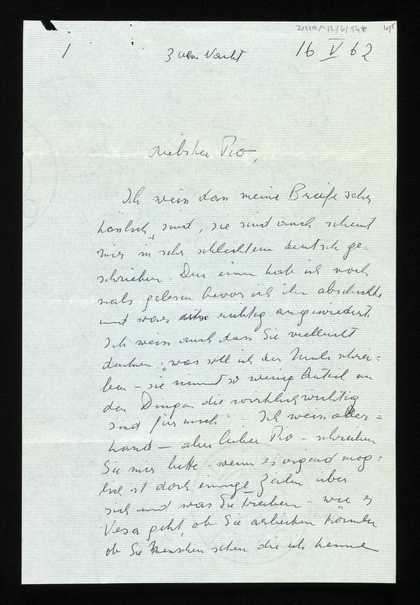 1
3 Uhr Nacht
16 V 62
Liebster Ro,
Ich weiss dass meine Briefe sehr
hässlich sind, sie sind auch scheint
mir in sehr schlechtem deutsch ge-
schrieben. Den einen hab ich noch-
mals gelesen bevor ich ihn abschickte
und war richtig angewidert
Ich weiss auch dass Sie vielleicht
denken: was soll ich der schrei-
ben - sie nimmt so wenig Anteil an
den Dingen die wirklich wichtig
sind für mich. Ich weiss aller-
hand - aber lieber Ro - schreiben
Sie mir bitte wenn es irgend mög-
lich ist doch einige Zeilen über
sich und was Sie treiben - wie es
Vera geht, ob Sie arbeiten können
ob Sie Menschen sehen die ich kenne